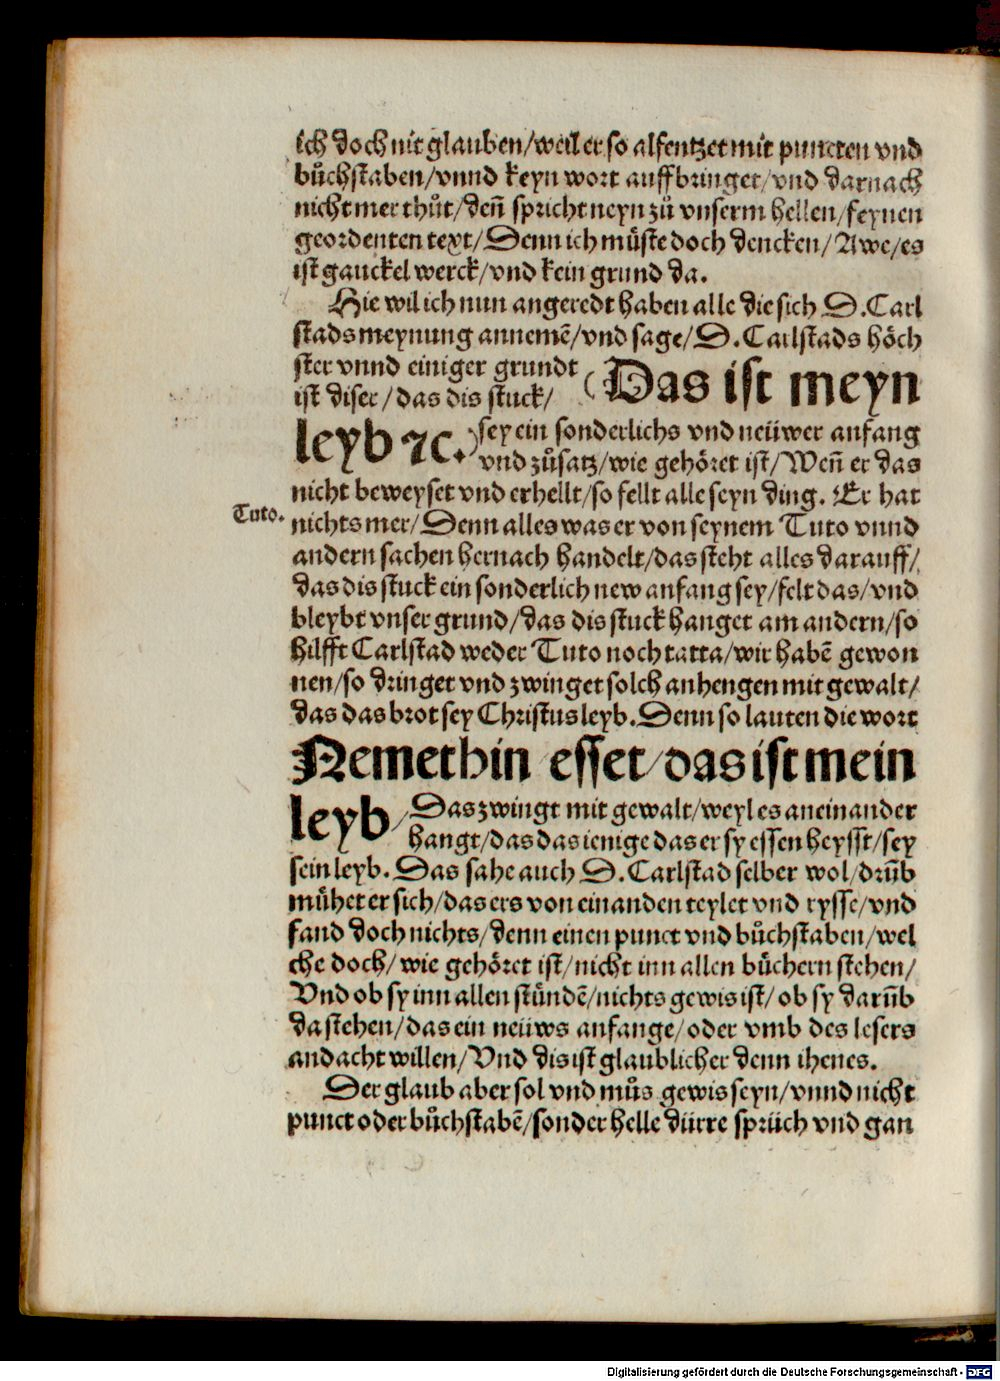 ich doch nit glauben/weil er so alfentzet mit puncten vnd
bůchstaben/vnnd keyn wort auffbringet/vnd darnach
nicht mer thůt/deñ spricht neyn zů vnserm hellen/feynen
geordenten text/Denn ich můste doch dencken/Awe/es
ist gauckel werck/vnd kein grund da.
Hie wil ich nun angeredt haben alle die sich D.Carl
stads meynung annemē/vnd sage/D.Carlstads höch
ster vnnd einiger grundt
ist diser/das dis stuck/ (Das ist meyn
leyb ⁊c.) sey ein sonderlichs vnd neüwer anfang
vnd zůsatz/wie gehöret ist/Weñ er das
nicht beweyset vnd erhellt/so fellt alle seyn ding. Er hat
Tuto. nichts mer/Denn alles was er von seynem Tuto vnnd
andern sachen hernach handelt/das steht alles darauff/
das dis stuck ein sonderlich new anfang sey/felt das/vnd
bleybt vnser grund/das dis stuck hanget am andern/so
hilfft Carlstad weder Tuto noch tatta/wir habē gewon
nen/so dringet vnd zwinget solch anhengen mit gewalt/
das das brot sey Christus leyb.Denn so lauten die wort
Nemet hin esset/das ist mein
leyb/ Das zwingt mit gewalt/weyl es aneinander
hangt/das das ienige das er sy essen heysst/sey
sein leyb. Das sahe auch D.Carlstad selber wol/drüb
mühet er sich/das ers von einanden teylet vnd rysse/vnd
fand doch nichts/denn einen punct vnd bůchstaben/wel
che doch/wie gehöret ist/nicht inn allen büchern stehen/
Vnd ob sy inn allen stündē/nichts gewis ist/ob sy darüb
da stehen/das ein neüws anfange/oder vmb des lesers
andacht willen/Vnd dis ist glaublicher denn ihenes.
Der glaub aber sol vnd můs gewis seyn/vnnd nicht
punct oder bůchstabē/sonder helle dürre sprüch vnd gan
Digitalisierung gefördert durch die Deutsche Forschungsgemeinschaft - DFG